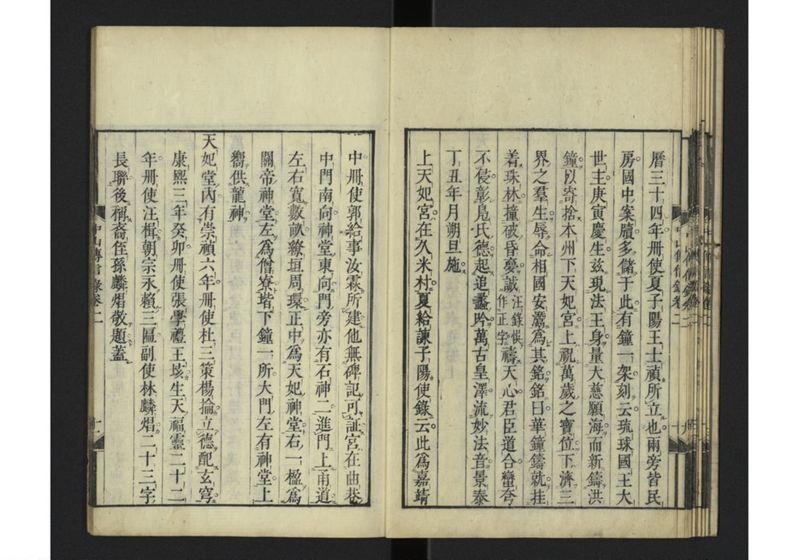 曆三十四年册使夏子陽王士禎所立也兩旁皆民
房國中案牘多儲于此有鐘一架刻云琉球國王大
世主庚寅慶生茲現法王身量大慈願海而新鑄洪
鐘以寄捨本州下天妃宮上祝萬歲之寶位下濟三
界之羣生辱命相國安潛爲其銘銘曰華鐘鑄就挂
着珠林撞破昏夢誠汪錄俱作正字禱天心君臣道合蠻夸
不侵彰鳬氏德起追蠡吟萬古皇澤流妙法音景泰
丁丑年月朔旦施
上天妃宮在久米村夏給諫子陽使錄云此爲嘉靖
中册使郭給事汝霖所建他無碑記可証宮在曲巷
中門南向神堂東向門旁亦有石神二進門上甬道
左右寬數畝繚垣周環正中爲天妃神堂右一楹爲
關帝神堂左爲僧寮堦下鐘一所大門左有神堂上
嚮供龍神
天妃堂內有崇禎六年册使杜三策楊掄立德配玄穹
康熙三年癸卯册使張學禮王垓生天福靈二十二
年册使汪楫朝宗永賴三匾副使林麟焻二十三字
長聯後稱裔侄孫麟焻敬題蓋
中山傳信錄卷二